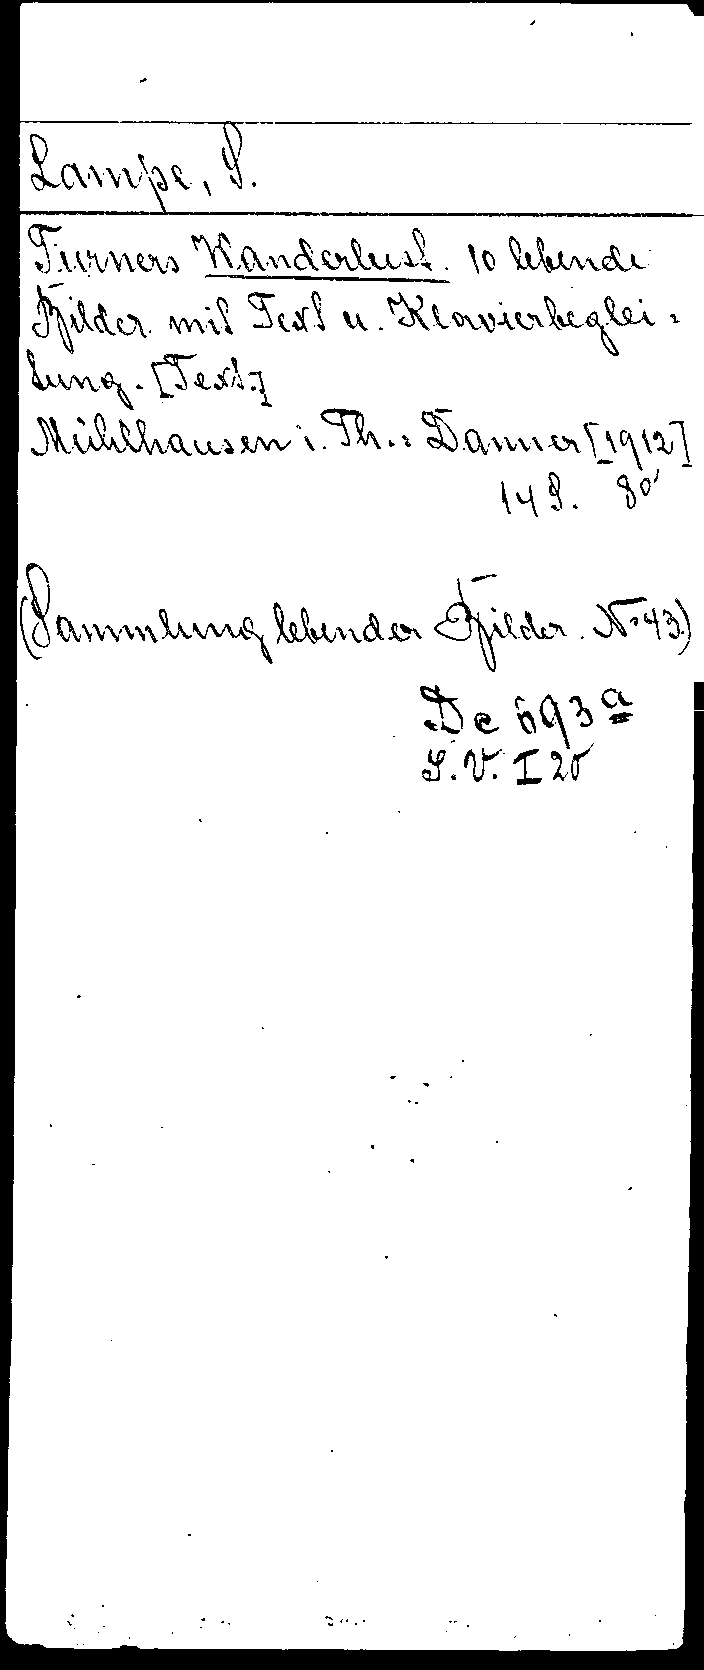 Lampe, S.
Turners Wanderlust. 10 lebende
Bilder mit Text u. Klavierbeglei=
tung. [Text.]
Mühlhausen i. Th.: Danner [1912]
14 S. 8°
(Sammlung lebender Bilder. N=43.)
De 693 a
S.V. I 20